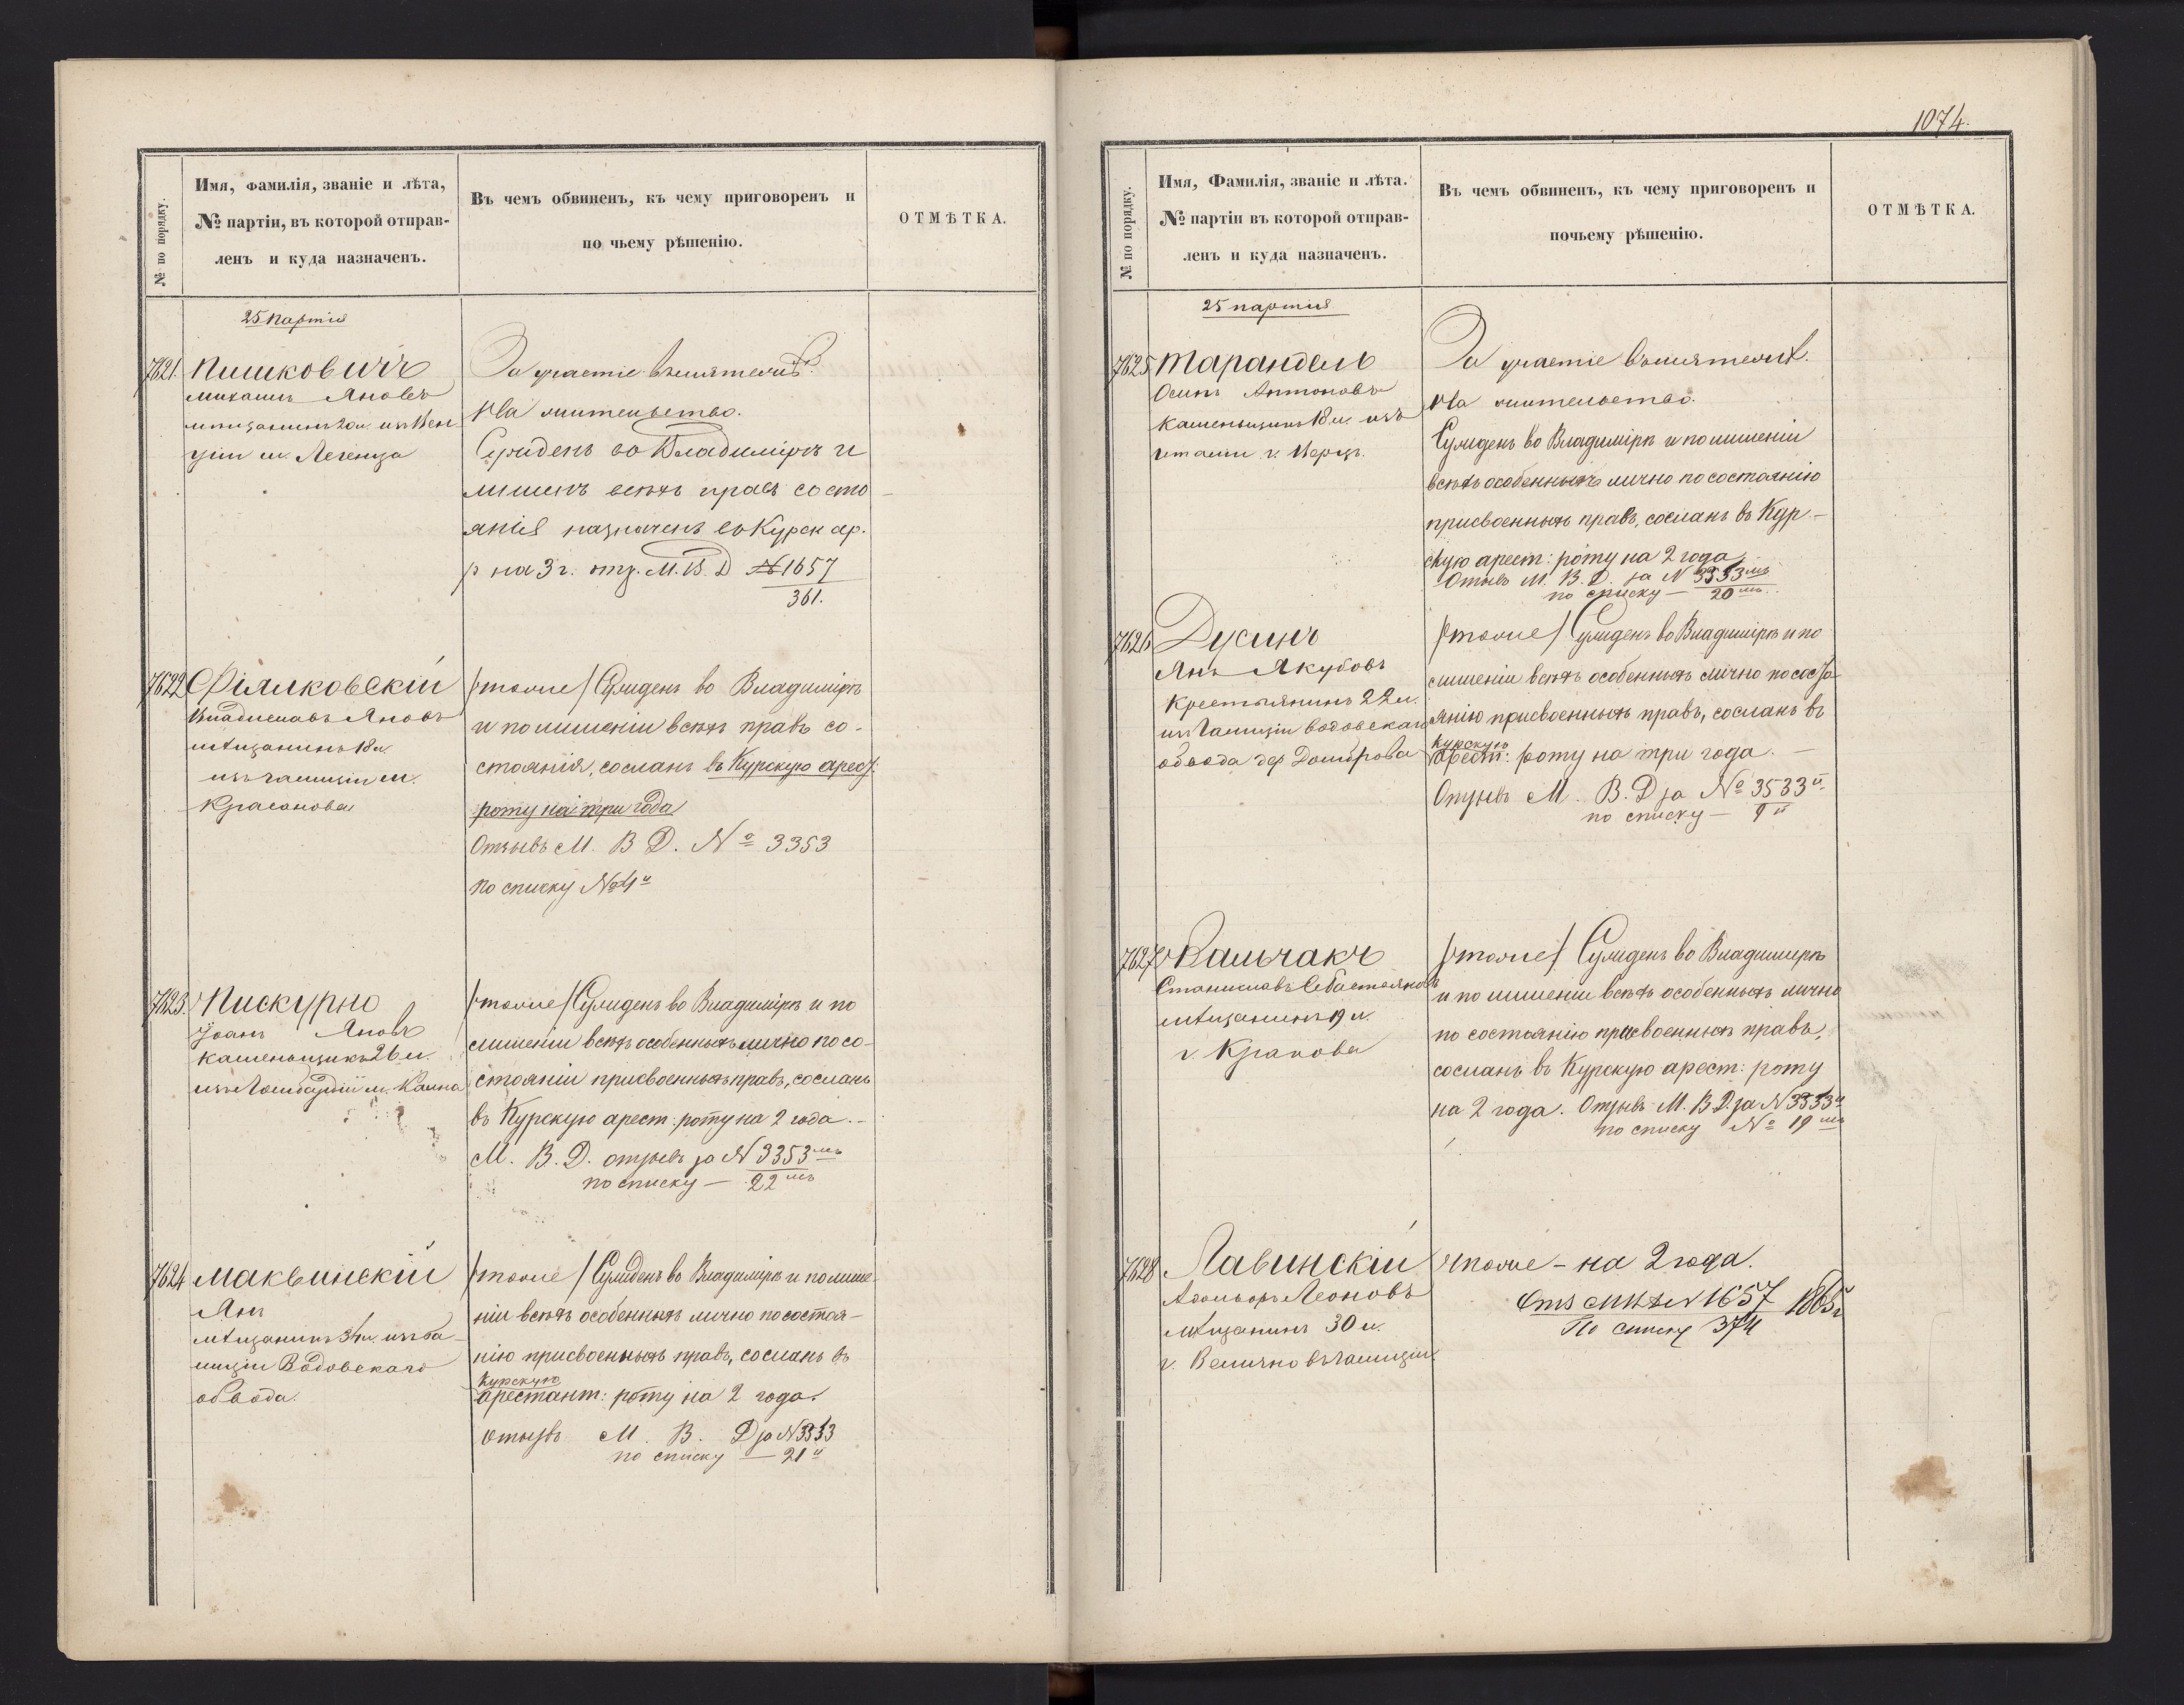 № по порядку.
Имя, фамилія, званіе и лѣта,
№ партіи, въ которой отправ-
ленъ и куда назначенъ.
Въ чемъ обвиненъ, къ чему приговоренъ и
по чьему рѣшенію.
ОТМѢТКА.
25 партія
7621.
Пишковичъ
Михаилъ Яновъ
мѣщанинъ 20 л. изъ Вен
гріи м.
За участіе въ мятежѣ.
На жительство.
Сужденъ во Владимірѣ и
лишенъ всѣхъ правъ состо
янія назначенъ въ Курск ар.
р на 3 г. отз. М. В. Д № 1657
361.
7622
Фіялковскій
Владиславъ Яновъ
мѣщанинъ 18 л.
изъ Галиціи м.
/тоже/ Сужденъ во Владимірѣ
и по лишеніи всѣхъ правъ со-
стоянія, сосланъ въ Курскую арест:
роту на три года
Отзывъ М. В Д. № 3353
по списку № 4й
7623.
Пискурно
Іоанъ Яновъ
каменьщикъ 26 л.
изъ Ломбардіи м.
/тоже/ Сужденъ во Владимірѣ и по
лишеніи всѣхъ особенныхъ лично по со-
стоянію присвоенныхъ правъ, сосланъ
въ Курскую арест: роту на 2 года.-
М. В. Д. отзывъ за № 3353мъ
по списку — 22мъ
7624
Маквинскій
Янъ
мѣщанинъ 34 л. изъ Га-
лиціи Вадовскаго
обвода.
/тоже/ Сужденъ во Владимірѣ и по лише-
ніи всѣхъ особенныхъ лично по состоя-
нію присвоенныхъ правъ, сосланъ въ
Курскую
арестант: роту на 2 года.
отзывъ М. В. Д за № 3353
по списку — 21й
1074.
№ по порядку.
Имя, Фамилія, званіе и лѣта.
№ партіи въ которой отправ-
ленъ и куда назначенъ.
Въ чемъ обвиненъ, къ чему приговоренъ и
почьему рѣшенію.
ОТМѢТКА.
25 партія
7625
Тарандель
Осипъ Антоновъ
каменьщикъ 18 л. изъ
г.
За участіе въ мятежѣ.
На жительство.
Сужденъ во Владимірѣ и по лишеніи
всѣхъ особенныхъ лично по состоянію
присвоенныхъ правъ, сосланъ въ Кур-
скую арест: роту на 2 года
Отзывъ М. В. Д. за № 3353мъ
по списку — 20мъ
7626
Дусинъ
Янъ Якубовъ
крестьянинъ 22 л.
изъ Галиціи Вадовскаго
обвода дер Домброва
/тоже/ Сужденъ во Владимірѣ и по
лишеніи всѣхъ особенныхъ лично по состо
янію присвоенныхъ правъ, сосланъ въ
Курскую
арест: роту на три года. —
Отзывъ М. В. Д за № 3533й
по списку — 9й
7627
Вальчакъ
Станиславъ Себастьяновъ
мѣщанинъ 19 л.
г. Кракова
/тоже/ Сужденъ во Владимірѣ
и по лишеніи всѣхъ особенныхъ лично
по состоянію присвоенныхъ правъ,
сосланъ въ Курскую арест: роту
на 2 года. Отзывъ М. В Д. за № 3353й
по списку № 19мъ
7628
Лавинскій
Адольфъ Леоновъ
мѣщанинъ 30 л.
г. Величко въ Галиціи
тоже - на 2 года.
Отз № 1657 1865 г
По списку 374